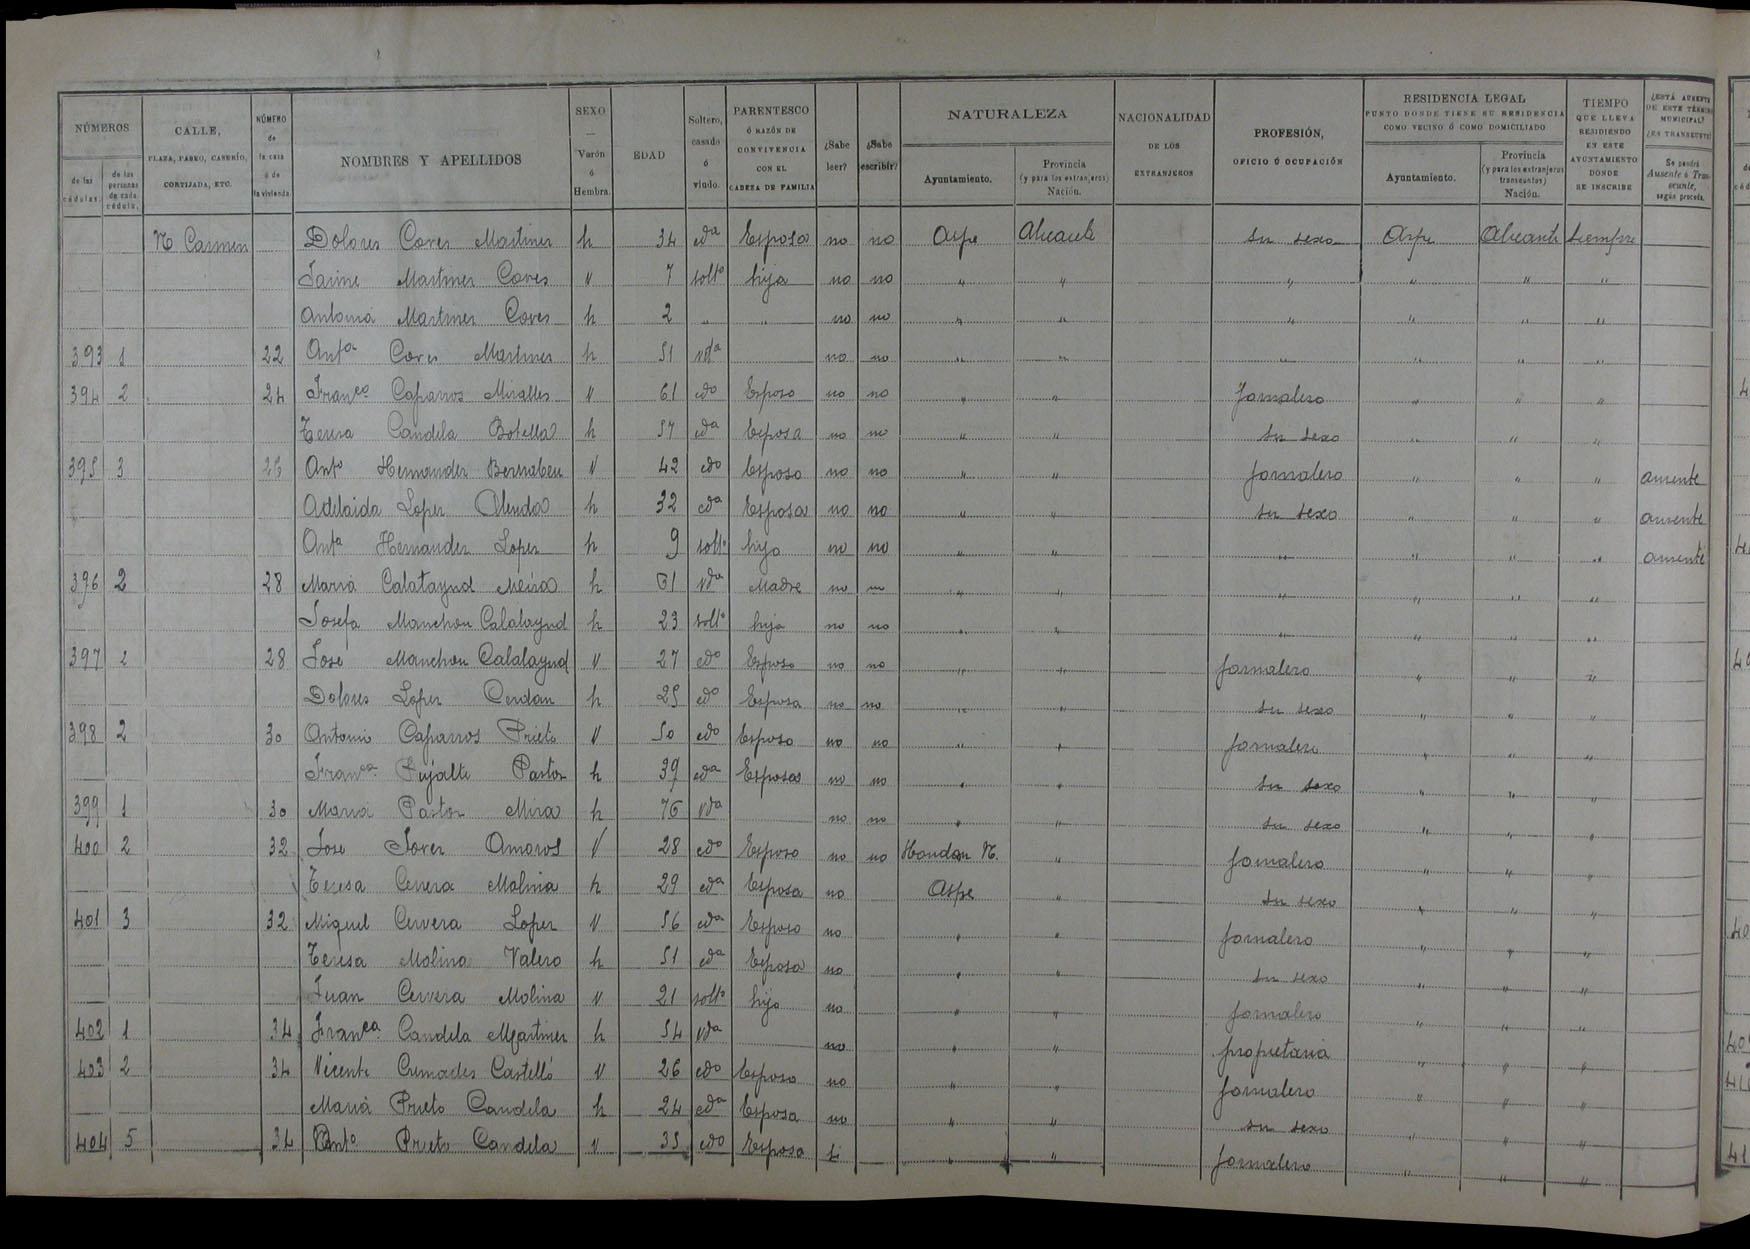 NÚMEROS
de las cédulas.
de las personas de cada cédula.
CALLE,
PLAZA, PASEO, CASERÍO,
CORTIJADA, ETC.
NÚMERO de la casa ó de la vivienda
NOMBRES Y APELLIDOS
SEXO — Varón ó Hembra.
EDAD
Soltero, casado ó viudo.
PARENTESCO Ó RAZÓN DE CONVIVENCIA CON EL CABEZA DE FAMILIA
¿Sabe leer?
¿Sabe escribir?
NATURALEZA
Ayuntamiento.
Provincia (y para los extranjeros) Nación.
NACIONALIDAD DE LOS EXTRANJEROS
PROFESIÓN,
OFICIO Ó OCUPACIÓN
RESIDENCIA LEGAL
PUNTO DONDE TIENE SU RESIDENCIA COMO VECINO Ó COMO DOMICILIADO
Ayuntamiento.
Provincia (y para los extranjeros transeuntes) Nación.
TIEMPO QUE LLEVA RESIDIENDO EN ESTE AYUNTAMIENTO DONDE SE INSCRIBE
¿ESTÁ AUSENTE DE ESTE TÉRMINO MUNICIPAL? ¿ES TRANSEUNTE?
Se pondrá Ausente ó Transeunte, según proceda.
N Carmen Dolores Cores Martinez h 34 cda Esposa no no Aspe Alicante su sexo Aspe Alicante siempre
Jaime Martinez Cores V 7 solto hijo no no " " " " " "
Antonia Martinez Cores h 2 " " no no " " " " " "
393 1 22 Anta Cores Martinez h 51 vda no no " " " " " "
394 2 24 Franco Caparros Miralles V 61 cdo Esposo no no " " Jornalero " " "
Teresa Candela Botella h 57 cda Esposa no no " " su sexo " " "
395 3 26 Anto Hernandez Bernabeu V 42 cdo Esposo no no " " Jornalero " " " ausente
Adelaida Lopez Alenda h 32 cda Esposa no no " " su sexo " " " ausente
Anta Hernandez Lopez h 9 solta hija no no " " " " " " ausente
396 2 28 Maria Calatayud Meira h 61 vda Madre no no " " " " " "
Josefa Manchon Calatayud h 23 solta hija no no " " " " " "
397 2 28 Jose Manchon Calatayud V 27 cdo Esposo no no " " Jornalero " " "
Dolores Lopez Cerdan h 25 cdo Esposa no no " " su sexo " " "
398 2 30 Antonio Caparros Prieto V 50 cdo Esposo no no " " Jornalero " " "
Franca Pujalte Pastor h 39 cda Esposa no no " " su sexo " " "
399 1 30 Maria Pastor Mira h 76 vda no no " " su sexo " " "
400 2 32 Jose Jover Amoros V 28 cdo Esposo no no Hondon N. " Jornalero " " "
Teresa Cervera Molina h 29 cda Esposa no Aspe " su sexo " " "
401 3 32 Miguel Cervera Lopez V 56 cda Esposo no " " Jornalero " " "
Teresa Molina Valero h 51 cda Esposa no " " su sexo " " "
Juan Cervera Molina V 21 solto hijo no " " Jornalero " " "
402 1 34 Franca Candela Martinez h 54 vda no " " propietaria " " "
403 2 34 Vicente Cremades Castelló V 26 cdo Esposo no " " Jornalero " " "
Maria Prieto Candela h 24 cda Esposa no " " su sexo " " "
404 5 34 Anto Prieto Candela V 35 cdo Esposo si " " Jornalero " " "